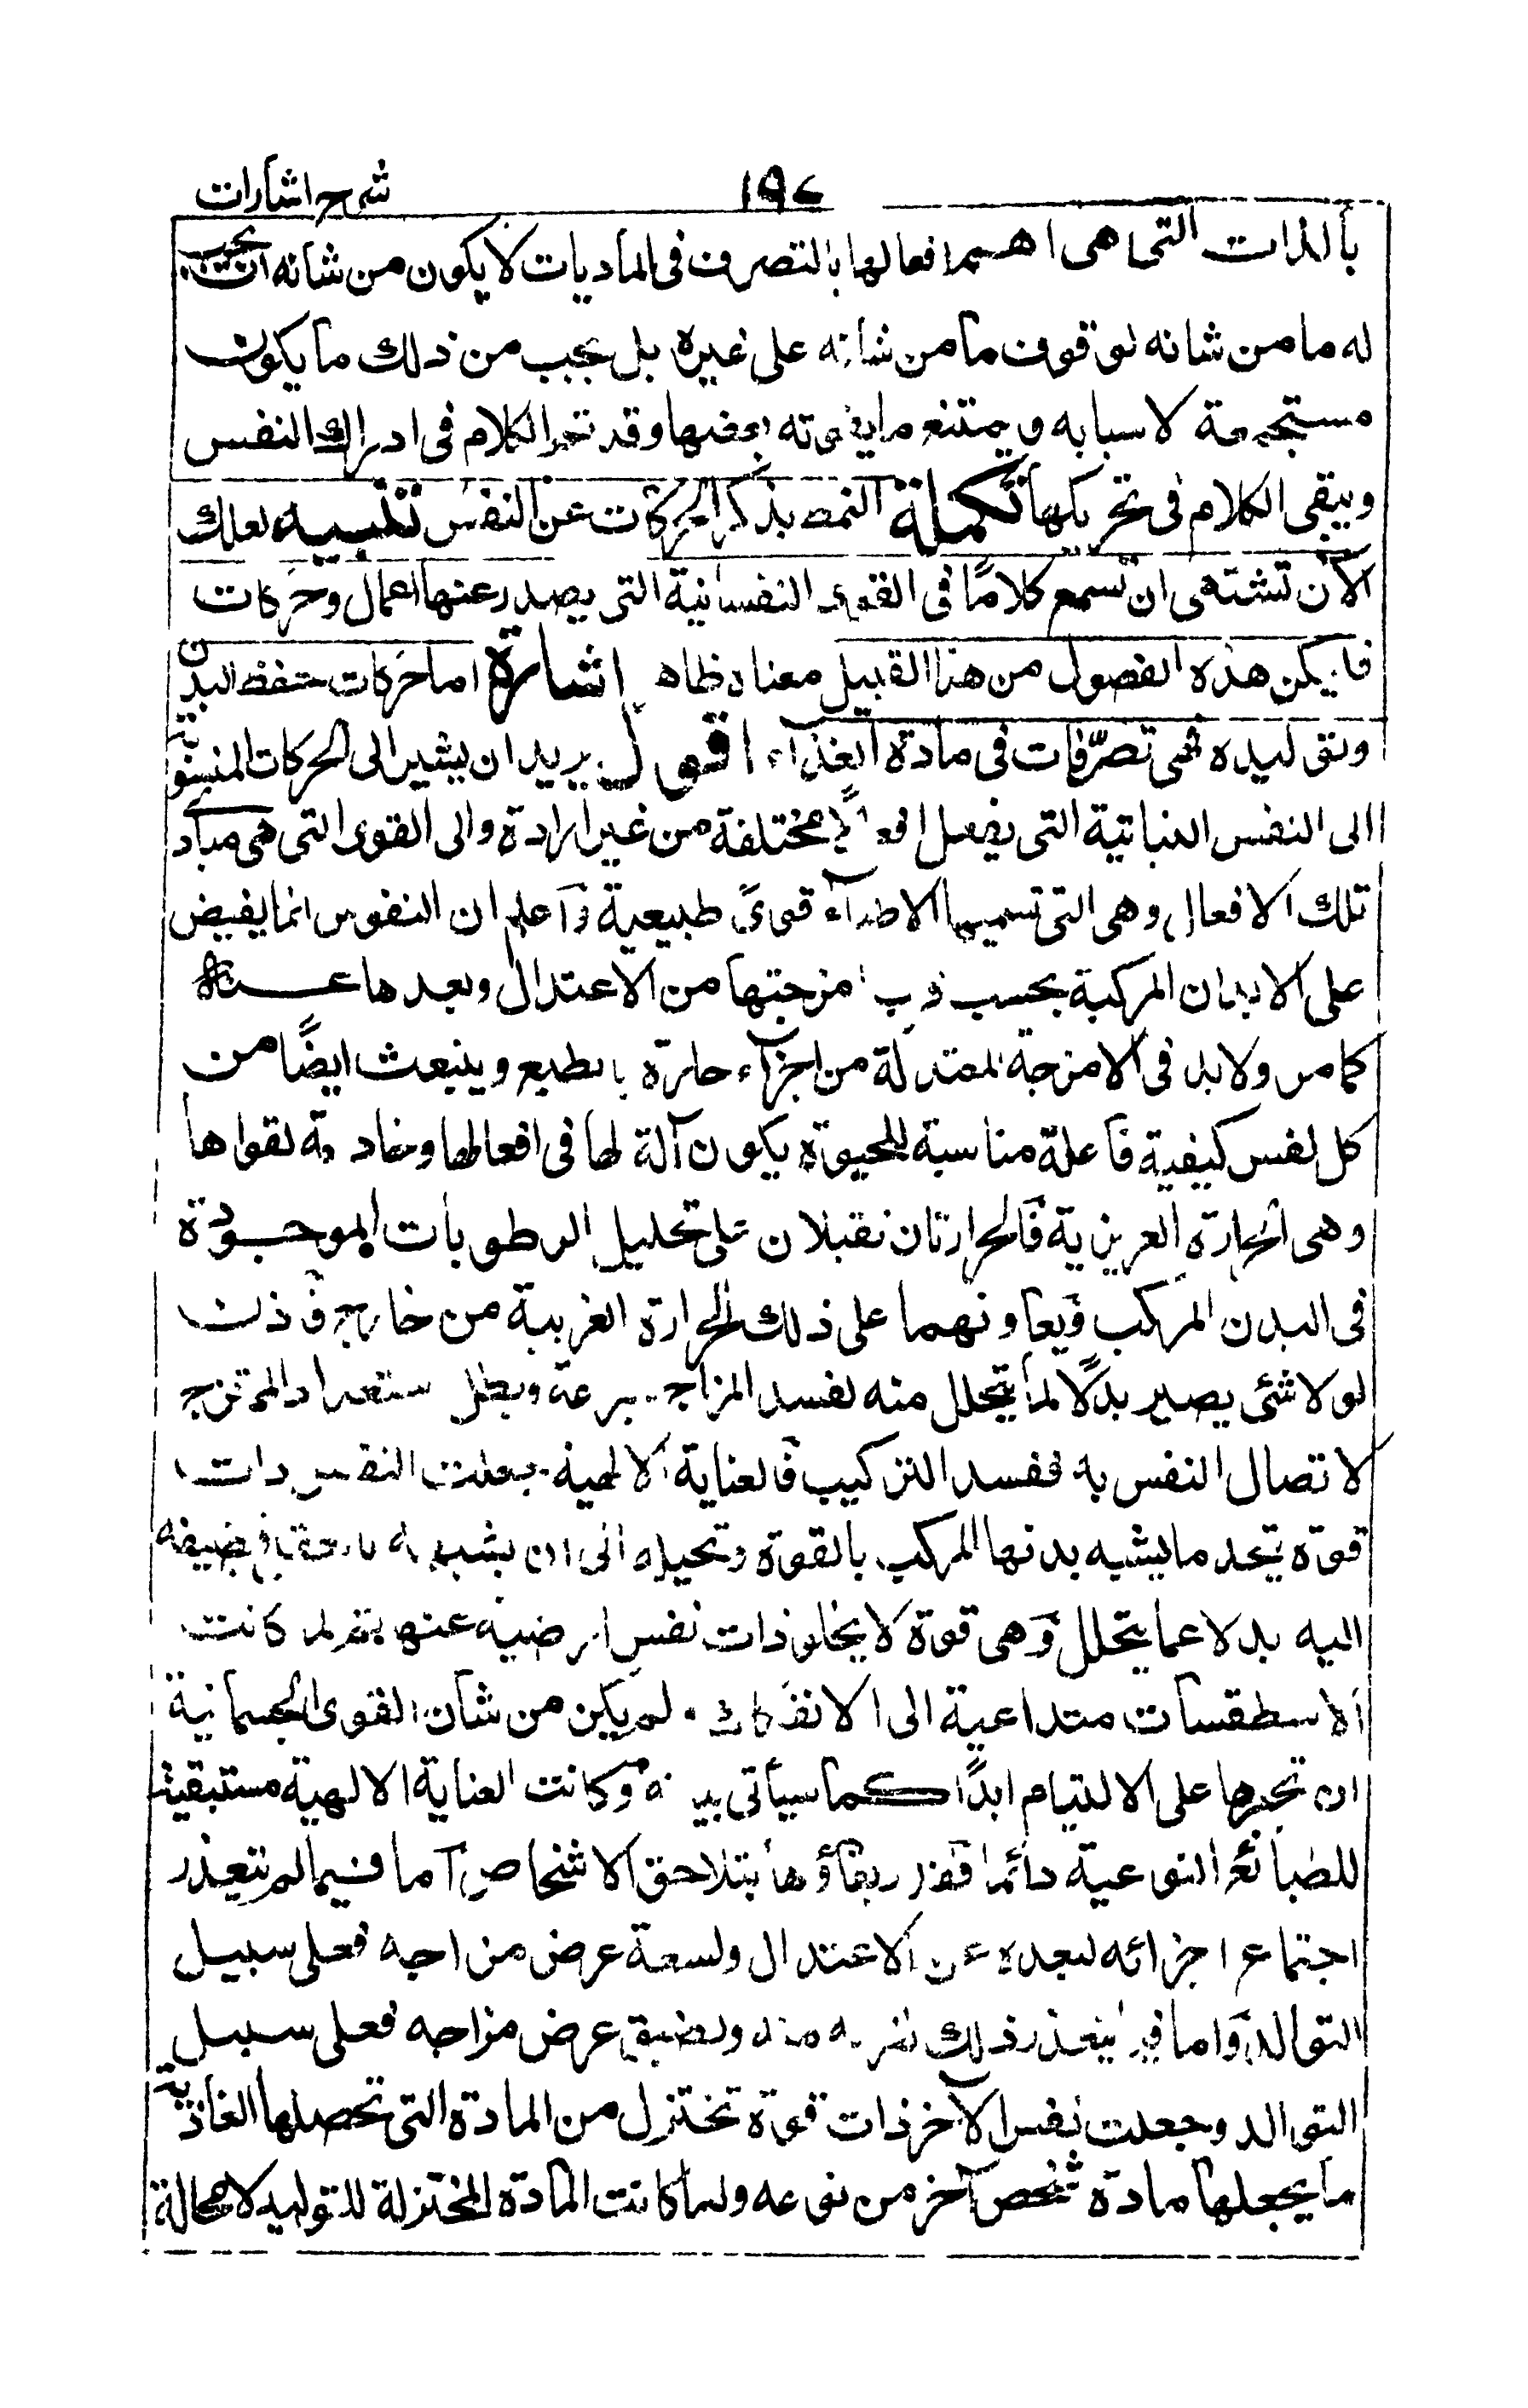 شرح اشارات
١٩٤
بالذات التى هى اهم افعالها بالتصرف فى الماديات لا يكون من شانه ان يجب
له ما من شانه لوقوف ما من شانه على غيره بل يجب من ذلك ما يكون
مستجمعة لاسبابه و يمتنع ما يفوته بعضها وقد تم الكلام فى ادراك النفس
ويبقى الكلام فى تحريكها تكملة النمط بذكر الحركات عن النفس تنبيه لعلك
الآن تشتهى ان تسمع كلامًا فى القوى النفسانية التى يصدر عنها اعمال وحركات
فليكن هذه الفصول من هذا القبيل معناه ظاهر اشارة اما حركات حفظ البدن
وتوليده فهى تصرّفات فى مادة الغذاء اقول يريد ان يشير الى الحركات المنسوبة
الى النفس النباتية التى يفعل افعالًا مختلفة من غير ارادة والى القوى التى هى مبادى
تلك الافعال وهى التى تسميها الاطباء قوىً طبيعية واعلم ان النفوس انما يفيض
على الابدان المركبة بحسب قرب امزجتها من الاعتدال وبعدها عنه
كما مر ولابد فى الامزجة المعتدلة من اجزاء حارّة بالطبع وينبعث ايضًا من
كل نفس كيفية فاعلة مناسبة للحيوة يكون آلة لها فى افعالها وخادمة لقواها
وهى الحرارة الغريزية فالحرارتان تقبلان على تحليل الرطوبات الموجودة
فى البدن المركب ويعاونهما على ذلك الحرارة الغريبة من خارج فاذن
لولا شئ يصير بدلًا لما يتحلل منه لفسد المزاج بسرعة وبطل استعداد الممتزج
لاتصال النفس به ففسد التركيب فالعناية الالهية جعلت النفس ذات
قوة تتخذ ما يشبه بدنها المركب بالقوة وتحيله الى ان يشبه بالفعل فيضيفه
اليه بدلا عما يتحلل وهى قوة لا يخلو ذات نفس ارضية عنها ثم لما كانت
الاسطقسات متداعية الى الانفكاك ولم يكن من شان القوى الجسمانية
ان تجبرها على الالتيام ابدًا كما سياتى بيانه وكانت العناية الالهية مستبقية
للطبائع النوعية دائما فقدر بقاؤها بتلاحق الاشخاص اما فيما لم يتعذر
اجتماع اجزائه لبعده عن الاعتدال ولسعة عرض مزاجه فعلى سبيل
التوالد واما فيما يتعذر ذلك لقربه منه ولضيق عرض مزاجه فعلى سبيل
التوالد وجعلت نفس الآخر ذات قوة تختزل من المادة التى تحصلها الغاذية
ما يجعلها مادة شخص آخر من نوعه ولما كانت المادة المختزلة للتوليد لا محالة